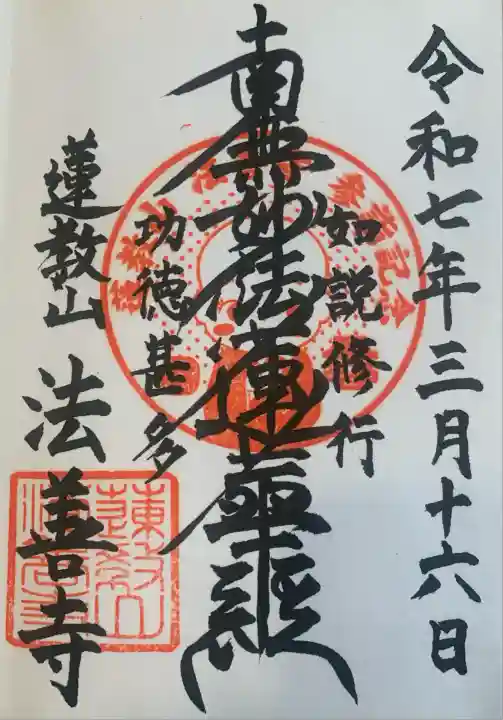 令和七年三月十六日
如説修行
南無妙法蓮華経
功徳甚多
蓮教山
法善寺